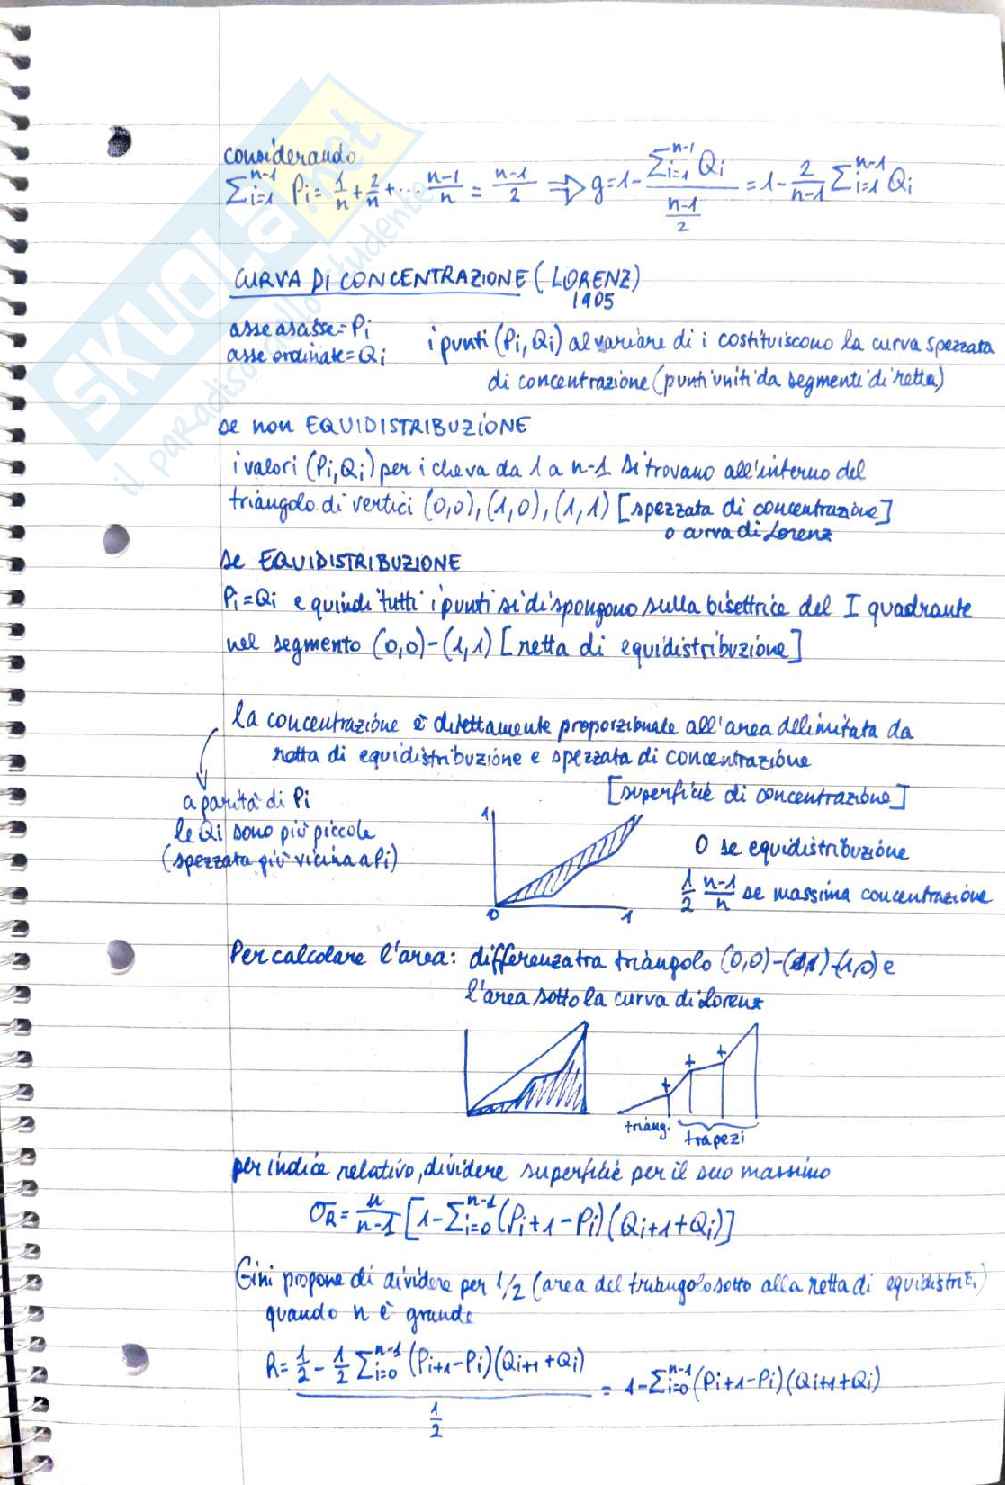 considerando
∑ᵢ₌₁ⁿ⁻¹ Pi = 1/n + 2/n + ... n-1/n = n-1/2 ⇒ g = 1 - ∑ᵢ₌₁ⁿ⁻¹ Qi / (n-1/2) = 1 - 2/n-1 ∑ᵢ₌₁ⁿ⁻¹ Qi
CURVA DI CONCENTRAZIONE (LORENZ)
1905
asse ascisse = Pi
asse ordinate = Qi
i punti (Pi, Qi) al variare di i costituiscono la curva spezzata
di concentrazione (punti uniti da segmenti di retta)
se non EQUIDISTRIBUZIONE
i valori (Pi, Qi) per i che va da 1 a n-1 si trovano all'interno del
triangolo di vertici (0,0), (1,0), (1,1) [spezzata di concentrazione]
o curva di Lorenz
se EQUIDISTRIBUZIONE
Pi = Qi e quindi tutti i punti si dispongono sulla bisettrice del I quadrante
nel segmento (0,0) - (1,1) [retta di equidistribuzione]
la concentrazione è direttamente proporzionale all'area delimitata da
retta di equidistribuzione e spezzata di concentrazione
[superficie di concentrazione]
a parità di Pi
le Qi sono più piccole
(spezzata più vicina a Pi)
1
0
1
0 se equidistribuzione
1/2 n-1/n se massima concentrazione
Per calcolare l'area: differenza tra triangolo (0,0) - (1,1) - (1,0) e
l'area sotto la curva di Lorenz
+ + +
triang.
trapezi
per indice relativo, dividere superficie per il suo massimo
σR = n/n-1 [1 - ∑ᵢ₌₀ⁿ⁻¹ (Pi+1 - Pi) (Qi+1 + Qi)]
Gini propone di dividere per 1/2 (area del triangolo sotto alla retta di equidistri.)
quando n è grande
R = 1/2 - 1/2 ∑ᵢ₌₀ⁿ⁻¹ (Pi+1 - Pi) (Qi+1 + Qi) / 1/2 = 1 - ∑ᵢ₌₀ⁿ⁻¹ (Pi+1 - Pi) (Qi+1 + Qi)
SKUOLA.net
il paradiso dello studente